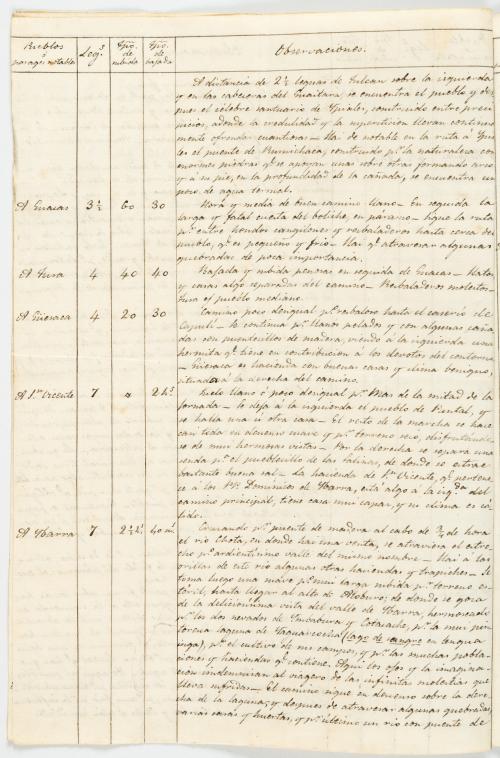 Pueblos ó parages notable | Leg.s | Tpo. de subida | Tpo. de bajada | Observaciones.
A distancia de 2½ leguas de Tulcan sobre la izquierda
y en las cabeceras del Guaitara, se encuentra el pueblo y des-
pues el célebre santuario de Ipiales, construido entre preci-
picios, adonde la credulidad y la supersticion llevan continua-
mente ofrendas cuantiosas — Hai de notable en la ruta á Ipia-
les el puente de Rumichaca, construido pr. la naturaleza con
enormes piedras qe. se apoyan unas sobre otras formando arco
y á su pie, en la profundidad de la cañada, se encuentra un
poso de agua termal.
A Guacas 3½ 60 30 Hora y media de buen camino llano — En seguida la
larga y fatal cuesta del boliche, en páramo — Sigue la ruta
pr. entre hondos cangilones y resbaladeros hasta cerca del
pueblo, qe. es pequeño y frio — Hai qe. atravesar algunas
quebradas de poca importancia.
A Tusa 4 40 40 Bajada y subida penosas en seguida de Guacas — Hatos
y casas algo separadas del camino — Resbaladeros molestos —
Tusa es pueblo mediano.
A Güesaca 4 20 30 Camino poco desigual pr. resbaloso hasta el caserio del
Capulí — Se continua pr. llanos pelados y con algunas caña-
das son puentecillos de madera, viendo á la izquierda una
hermita qe. tiene en contribucion á los devotos del contorno
— Güesaca es hacienda con buenas casas y clima benigno,
situada á la derecha del camino.
A Sn. Vicente 7 " 2 hs. Suelo llano ó poco desigual pr. mas de la mitad de la
jornada — Se deja á la izquierda el pueblo de Puntal, y
se halla una ú otra casa — El resto de la marcha se hace
casi toda en descenso suave y pr. terreno seco, disfrutando-
se de mui hermosas vistas — Por la derecha se separa una
senda pa. el pueblecillo de las Salinas, de donde se extrae
bastante buena sal — La hacienda de Sn. Vicente, qe. pertene-
ce á los PP. Dominicos de Ybarra, está algo á la izqda. del
camino principal, tiene casa mui capaz, y su clima es cá-
lido.
A Ybarra 7 2½ h. 40 m. Cruzando pr. puente de madera al cabo de ¾ de hora
el rio Chota, en donde hai una venta, se atraviesa el estre-
cho pr. ardientisimo valle del mismo nombre — Hai á las
orillas de este rio algunas otras haciendas y trapiches — Se
toma luego una suave pr. mui larga subida pr. terreno es-
téril, hasta llegar al alto de Aloburo; de donde se goza
de la deliciosisima vista del valle de Ybarra, hermoseado
pr. los dos nevados de Imbabura y Cotacache, pr. la mui pin-
toresca laguna de Yaguarcocha (lago de sangre en lengua
inga), pr. el cultivo de sus campos, y pr. las muchas pobla-
ciones y haciendas qe. contiene. Aqui los ojos y la imagina-
cion indemnisan al viagero de las infinitas molestias que
lleva sufridas — El camino sigue en descenso sobre la dere-
cha de la laguna; y despues de atravesar algunas quebradas,
varias casas y huertas, y pr. último un rio con puente de